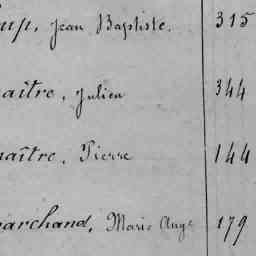 oup, Jean Baptiste. 315
aître, Julien 344
naître, Pierre 144
archand, Marie Ange 179